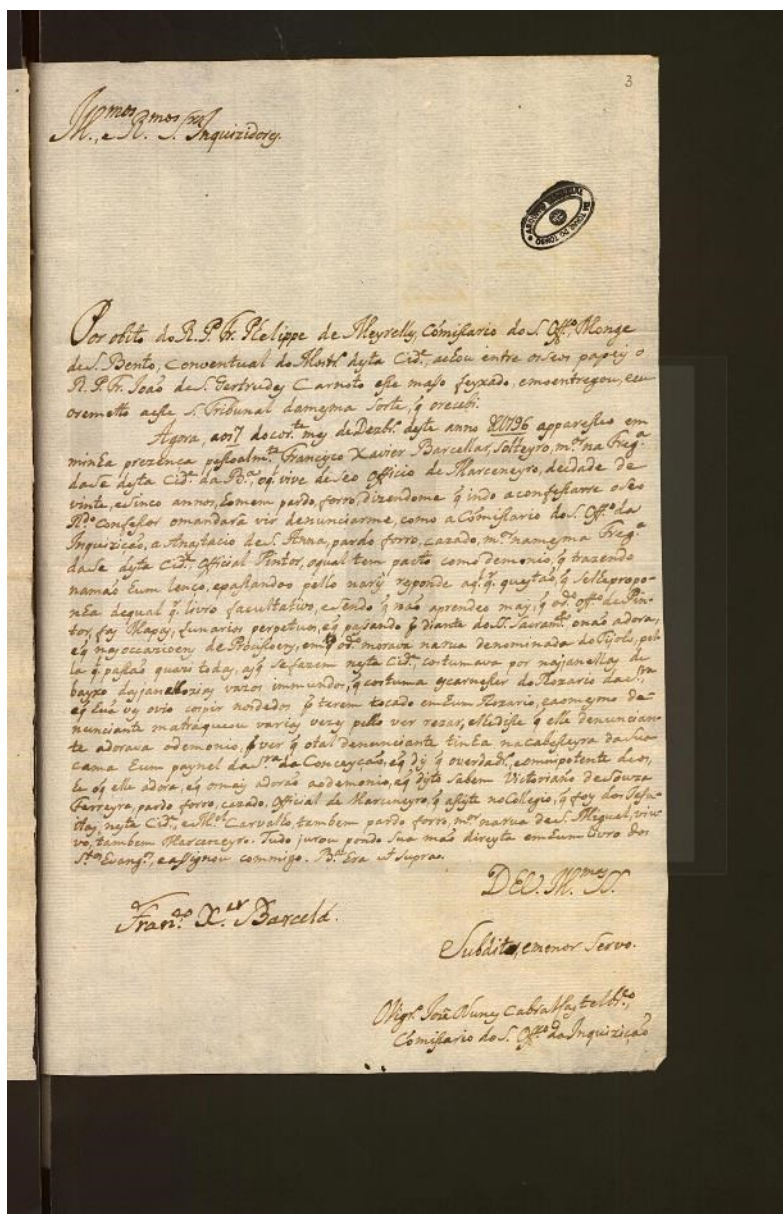 3
M.mos e R.mos S.res Inquizidores.
ARQUIVO NACIONAL DA TORRE DO TOMBO
Por obito do R. P. Fr. Phelippe de Meyrelles, Comissario do S. Off.o, Monge
de S. Bento, Conventual do Mostr.o desta Cid.e, achou entre os seos papeis o
R. P. Fr. João de S. Gertrudes Carnoto este maso feyxado, emoentregou, eeu
oremetto aeste S. Tribunal damesma sorte, q̃ orecebi.
Agora, aos 17 docor.te mes de Dezbr.o deste anno 1796 appareseo em
minha prezença pessoalm.te Francisco Xavier Barcellar, Solteyro, m.or na Freg.a
da Se desta Cid.e da B.a, oq.l vive de seo Officio de Marceneyro, deidade de
vinte, esinco annos, homem pardo, forro, dizendome q̃ indo aconfessarse oseo
R.do Confessor omandara vir denunciarme, como a Comissario do S. Off.o da
Inquizição, a Anastacio de S. Anna, pardo forro, cazado, m.or namesma Freg.a
da Se desta Cid.e Official Pintor, oqual tem pacto como demonio, q̃ trazendo
namão hum lenço, epassandoo pello naris responde aq.l q.r questão, q̃ selhepropo-
nha dequal q.r livro facultativo, esendo q̃ não aprendeo mais q̃ od.o Off.o de Pin-
tor, fas Mapas, Lunarios perpetuos, eq̃ pasando p. diante do S. Sacram.to onão adora,
eq̃ nas occazioens de Prosissoens, em q̃ od.o morava narua denominada do Tijolo, pel-
la q̃ passão quazi todas, as q̃ se fazem nesta Cid.e, costumava por nas janellas de
bayxo das janellas vazos immundos, q̃ costuma escarneser do Rozario da S.ra
eq̃ hua ves ovio cospir nos dedos p. terem tocado em hum Rozario, eaomesmo de-
nunciante matraqueou varias vezes pello ver rezar, elhedise q̃ elle denuncian-
te adorava odemonio, p. ver q̃ otal denunciante tinha nacabeseyra da sua
cama hum paynel da S.ra da Conceyção, eq̃ dis q̃ overdad.ro, eomnipotente deos,
he oq̃ elle adora, eq̃ omais adorão aodemonio, eq̃ disto sabem Victoriano de Souza
Ferreyra, pardo forro, cazado, Official de Marceneyro, q̃ asiste noCollegio, q̃ foy dos Jesu-
itas, nesta Cid.e, e M.el Carvalho, tambem pardo forro, m.or narua de S. Miguel, viu-
vo, tambem Marceneyro. Tudo jurou pondo sua mão direyta em hum livro dos
S.tos Evang.os, easignou commigo. B.a Era ut supra.
Fran.co X.er Barcelá.
Subdito, emenor Servo.
José Nunes Cabral Castelbr.co,
Comissario do S. Off.o da Inquizição